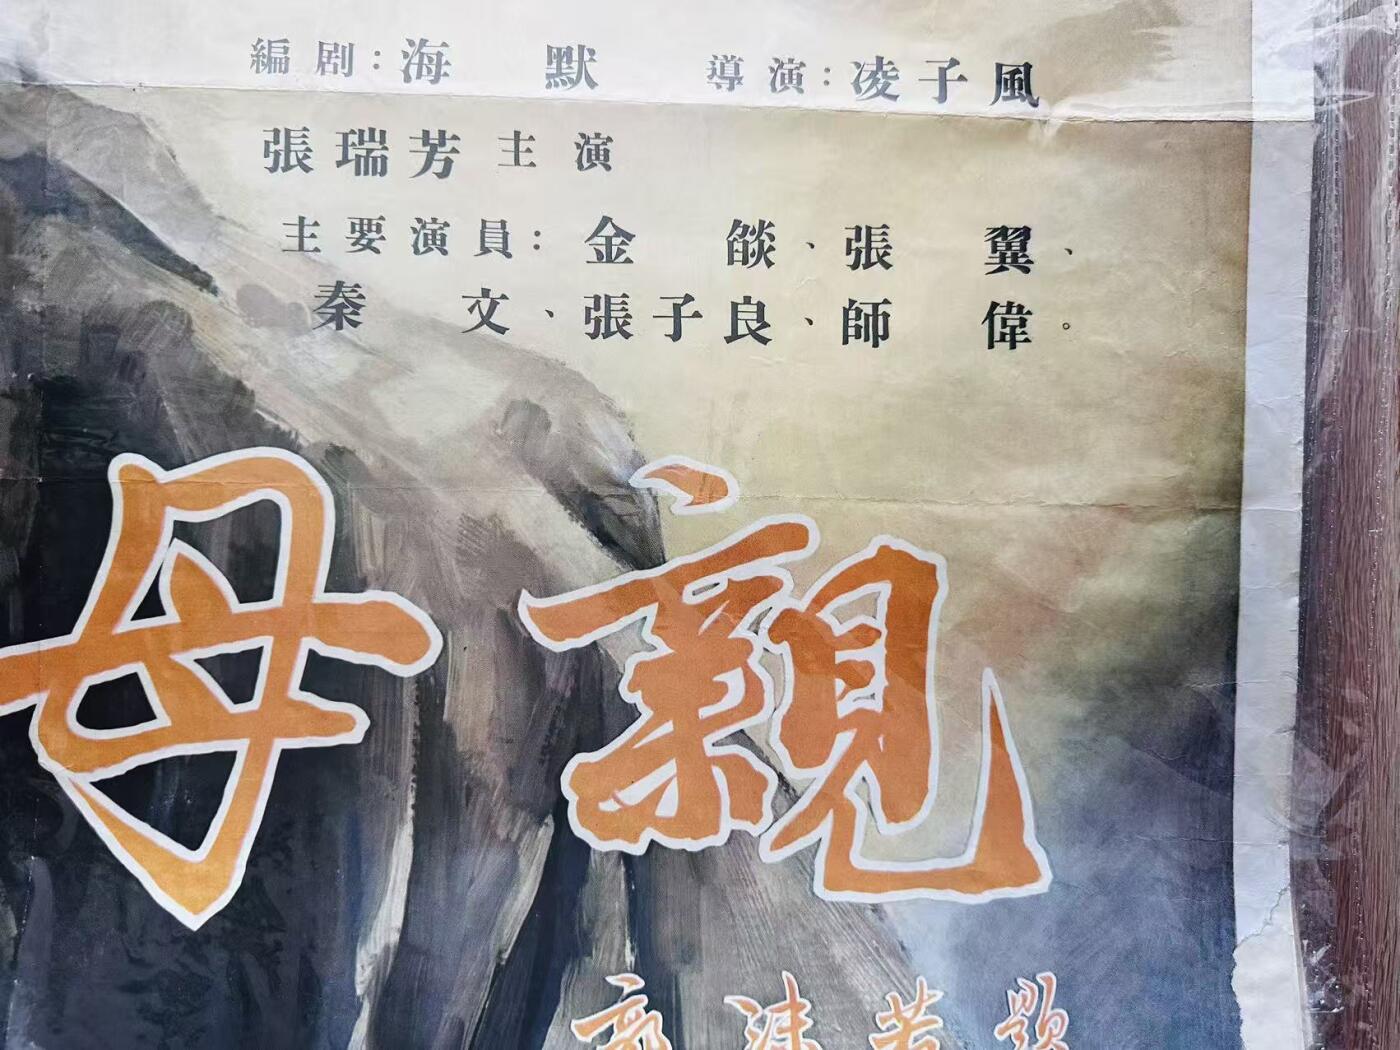 編剧：海默 導演：凌子風
張瑞芳主演
主要演員：金燄、張翼、
秦文、張子良、師偉。
母親
郭沫若題